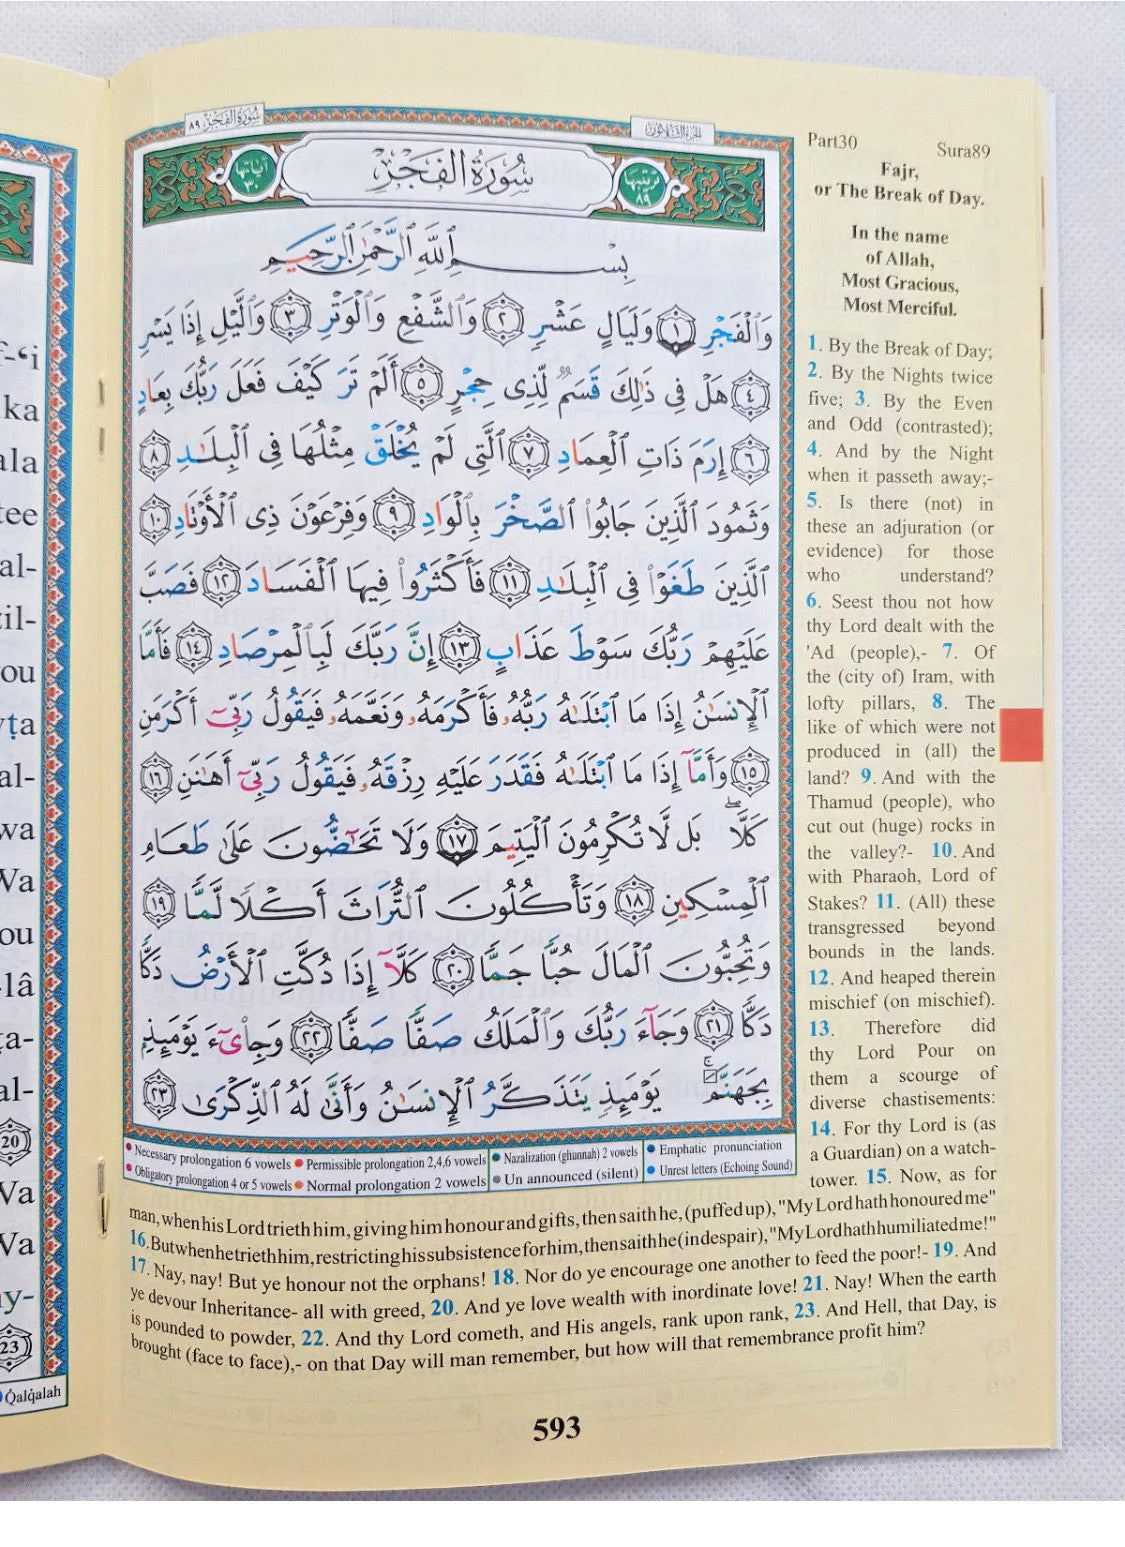 سُورَةُ الفَجْرِ ٨٩
الجزء الثلاثون
آياتها ٣٠
سُورَةُ الفَجْرِ
ترتيبها ٨٩
بِسْمِ ٱللَّهِ ٱلرَّحْمَٰنِ ٱلرَّحِيمِ
وَٱلْفَجْرِ ١ وَلَيَالٍ عَشْرٍ ٢ وَٱلشَّفْعِ وَٱلْوَتْرِ ٣ وَٱلَّيْلِ إِذَا يَسْرِ
٤ هَلْ فِى ذَٰلِكَ قَسَمٌ لِّذِى حِجْرٍ ٥ أَلَمْ تَرَ كَيْفَ فَعَلَ رَبُّكَ بِعَادٍ
٦ إِرَمَ ذَاتِ ٱلْعِمَادِ ٧ ٱلَّتِى لَمْ يُخْلَقْ مِثْلُهَا فِى ٱلْبِلَٰدِ ٨
وَثَمُودَ ٱلَّذِينَ جَابُوا۟ ٱلصَّخْرَ بِٱلْوَادِ ٩ وَفِرْعَوْنَ ذِى ٱلْأَوْتَادِ ١٠
ٱلَّذِينَ طَغَوْا۟ فِى ٱلْبِلَٰدِ ١١ فَأَكْثَرُوا۟ فِيهَا ٱلْفَسَادَ ١٢ فَصَبَّ
عَلَيْهِمْ رَبُّكَ سَوْطَ عَذَابٍ ١٣ إِنَّ رَبَّكَ لَبِٱلْمِرْصَادِ ١٤ فَأَمَّا
ٱلْإِنسَٰنُ إِذَا مَا ٱبْتَلَىٰهُ رَبُّهُۥ فَأَكْرَمَهُۥ وَنَعَّمَهُۥ فَيَقُولُ رَبِّىٓ أَكْرَمَنِ
١٥ وَأَمَّآ إِذَا مَا ٱبْتَلَىٰهُ فَقَدَرَ عَلَيْهِ رِزْقَهُۥ فَيَقُولُ رَبِّىٓ أَهَٰنَنِ ١٦
كَلَّا ۖ بَل لَّا تُكْرِمُونَ ٱلْيَتِيمَ ١٧ وَلَا تَحَٰٓضُّونَ عَلَىٰ طَعَامِ
ٱلْمِسْكِينِ ١٨ وَتَأْكُلُونَ ٱلتُّرَاثَ أَكْلًا لَّمًّا ١٩
وَتُحِبُّونَ ٱلْمَالَ حُبًّا جَمًّا ٢٠ كَلَّآ إِذَا دُكَّتِ ٱلْأَرْضُ دَكًّا
دَكًّا ٢١ وَجَآءَ رَبُّكَ وَٱلْمَلَكُ صَفًّا صَفًّا ٢٢ وَجِا۟ىٓءَ يَوْمَئِذٍۭ
بِجَهَنَّمَ ۚ يَوْمَئِذٍ يَتَذَكَّرُ ٱلْإِنسَٰنُ وَأَنَّىٰ لَهُ ٱلذِّكْرَىٰ ٢٣
Necessary prolongation 6 vowels Permissible prolongation 2,4,6 vowels Nazalization (ghunnah) 2 vowels Emphatic pronunciation
Obligatory prolongation 4 or 5 vowels Normal prolongation 2 vowels Un announced (silent) Unrest letters (Echoing Sound)
Part30 Sura89
Fajr,
or The Break of Day.
In the name
of Allah,
Most Gracious,
Most Merciful.
1. By the Break of Day;
2. By the Nights twice
five; 3. By the Even
and Odd (contrasted);
4. And by the Night
when it passeth away;-
5. Is there (not) in
these an adjuration (or
evidence) for those
who understand?
6. Seest thou not how
thy Lord dealt with the
'Ad (people),- 7. Of
the (city of) Iram, with
lofty pillars, 8. The
like of which were not
produced in (all) the
land? 9. And with the
Thamud (people), who
cut out (huge) rocks in
the valley?- 10. And
with Pharaoh, Lord of
Stakes? 11. (All) these
transgressed beyond
bounds in the lands.
12. And heaped therein
mischief (on mischief).
13. Therefore did
thy Lord Pour on
them a scourge of
diverse chastisements:
14. For thy Lord is (as
a Guardian) on a watch-
tower. 15. Now, as for
man, when his Lord trieth him, giving him honour and gifts, then saith he, (puffed up), "My Lord hath honoured me"
16. But when he trieth him, restricting his subsistence for him, then saith he (in despair), "My Lord hath humiliated me!"
17. Nay, nay! But ye honour not the orphans! 18. Nor do ye encourage one another to feed the poor!- 19. And
ye devour Inheritance- all with greed, 20. And ye love wealth with inordinate love! 21. Nay! When the earth
is pounded to powder, 22. And thy Lord cometh, and His angels, rank upon rank, 23. And Hell, that Day, is
brought (face to face),- on that Day will man remember, but how will that remembrance profit him?
593
ka
ala
tee
al-
zil-
ou
al-
wa
Wa
ou
al-
20
Wa
Wa
23
Qalqalah